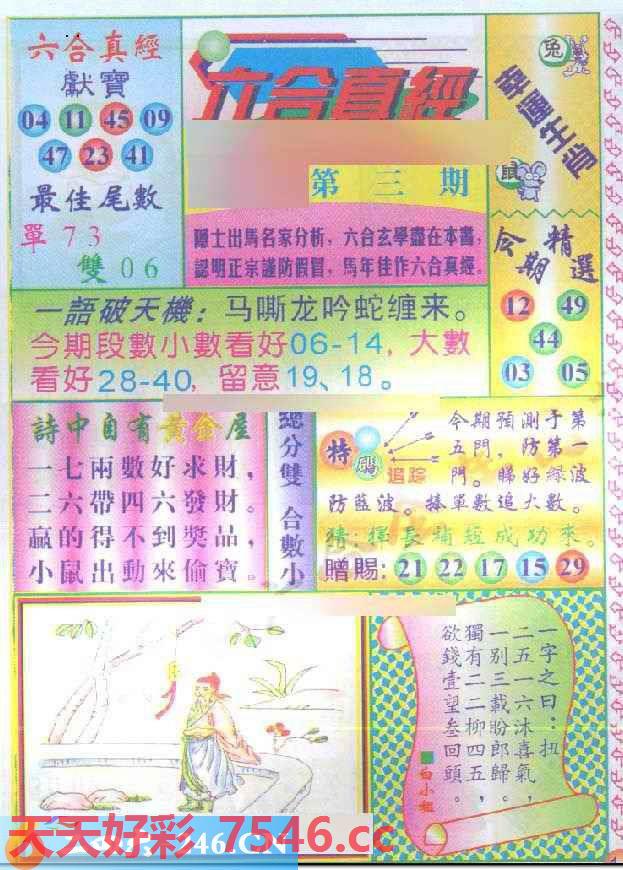 六合真經
獻寶
04 11 45 09
47 23 41
最佳尾數
單 7 3
雙 0 6
六合真經
第三期
隱士出馬名家分析，六合玄學盡在本書，
認明正宗謹防假冒，馬年佳作六合真經。
幸運生肖
兔
鼠
今期精選
12 49
44
03 05
一語破天機：马嘶龙吟蛇缠来。
今期段數小數看好06-14，大數
看好28-40，留意19、18。
詩中自有黄金屋
一七兩數好求財，
二六帶四六發財。
贏的得不到獎品，
小鼠出動來偷寶。
總分雙 合數小
特碼追踪
今期預測于第
五門，防第一
門。睇好綠波
防藍波。捧單數追大數。
猜：揮長補短成功來。
贈賜：21 22 17 15 29
一字之曰：扭
二五一六沐喜氣，
一别三載盼郎歸。
獨有二二柳四五，
欲錢壹望叁回頭。
白小姐
天天好彩 7546.cc